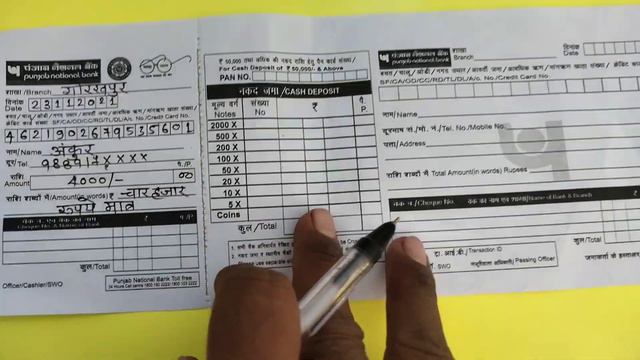 पंजाब नैशनल बैंक
punjab national bank
शाखा/Branch गोरखपुर
दिनांक
Date 23112021
SF/CA/OD/CC/RD/TL/DL/A/c. No/Credit Card No.
4621902679535601
नाम/Name अंकुर
दूर/Tel. 988917xxxx
राशि
Amount 4000/- 00
राशि शब्दों में(Amount(words) ₹ चार हजार
रुपये मात्र
Cheque No.& Name of Bank
कुल/Total
Officer/Cashier/SWO
Punjab National Bank Toll free
₹ 50,000 तथा अधिक की नकद राशि हेतु पैन कार्ड संख्या/
For Cash Deposit of ₹ 50,000/- & Above
PAN NO.
नकद जमा /CASH DEPOSIT
मूल्य वर्ग
Notes
संख्या
No
₹
पै.
P.
2000 X
500 X
200 X
100 X
50 X
20 X
10 X
5 X
Coins
कुल/Total
पंजाब नैशनल बैंक
punjab national bank
शाखा
Branch
दिनांक
Date
SF/CA/OD/CC/RD/TL/DL/A/c. No./Credit Card No.
नाम/Name
दूरभाष सं./मो. नं./Tel. No./Mobile No.
पता/Address
राशि शब्दों में Total Amount(in words) Rupees
चैक नं./Cheque No.
बैंक का नाम एवं शाखा/Name of Bank & Branch
कुल/Total
ट्रा. आई.डी./Transaction ID
SWO
Passing Officer
जमाकर्ता के हस्ताक्षर